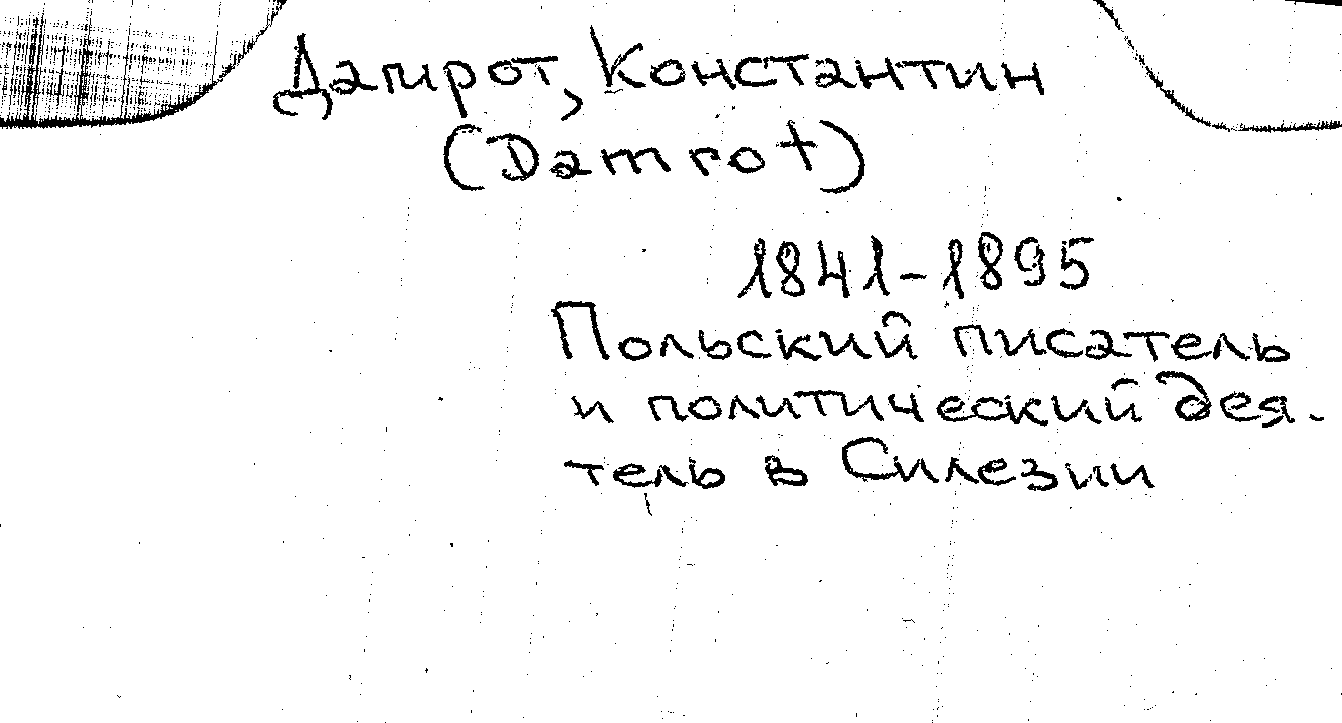 Дамрот, Константин
(Damrot)
1841-1895
Польский писатель
и политический дея-
тель в Силезии